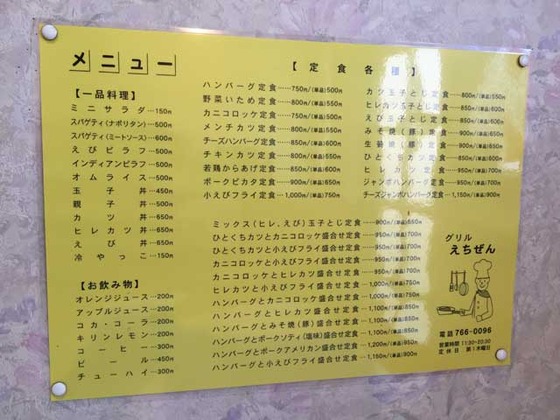 メニュー
【定食各種】
【一品料理】
ミニサラダ…150円
スパゲティ(ナポリタン)…500円
スパゲティ(ミートソース)…600円
えびピラフ…500円
インディアンピラフ…500円
オムライス…500円
玉子丼…450円
親子丼…500円
カツ丼…650円
ヒレカツ丼…650円
えび丼…650円
冷やっこ…150円
【お飲み物】
オレンジジュース…200円
アップルジュース…200円
コカ・コーラ…200円
キリンレモン…200円
コーヒー…300円
ビール…450円
チューハイ…300円
ハンバーグ定食……750円/(単品)500円
野菜いため定食……800円/(単品)550円
カニコロッケ定食……750円/(単品)500円
メンチカツ定食……800円/(単品)550円
チーズハンバーグ定食……850円/(単品)600円
チキンカツ定食……800円/(単品)550円
若鶏からあげ定食……850円/(単品)600円
ポークピカタ定食……900円/(単品)650円
小えびフライ定食……1,000円/(単品)750円
カツ玉子とじ定食……800円/(単品)550円
ヒレカツ玉子とじ定食…850円/(単品)600円
えび玉子とじ定食
みそ焼(豚)定食
生姜焼(豚)定食
ひとくちカツ定食
ヒレカツ定食
ジャンボハンバーグ定食
チーズジャンボハンバーグ定食…1,150円/(単品)900円
ミックス(ヒレ、えび)玉子とじ定食……900円/(単品)650円
ひとくちカツとカニコロッケ盛合せ定食
ひとくちカツと小えびフライ盛合せ定食
カニコロッケと小えびフライ盛合せ定食
カニコロッケとヒレカツ盛合せ定食
ヒレカツと小えびフライ盛合せ定食……1,000円/(単品)750円
ハンバーグとカニコロッケ盛合せ定食……1,000円/(単品)750円
ハンバーグとヒレカツ盛合せ定食
ハンバーグとみそ焼(豚)盛合せ定食
ハンバーグとポークソティ(塩味)盛合せ定食…1,100円/(単品)850円
ハンバーグとポークアメリカン盛合せ定食…1,100円/(単品)850円
ハンバーグと小えびフライ盛合せ定食……1,150円/(単品)900円
グリル
えちぜん
電話 766-0096
営業時間 11:30-20:30
定休日 第1木曜日